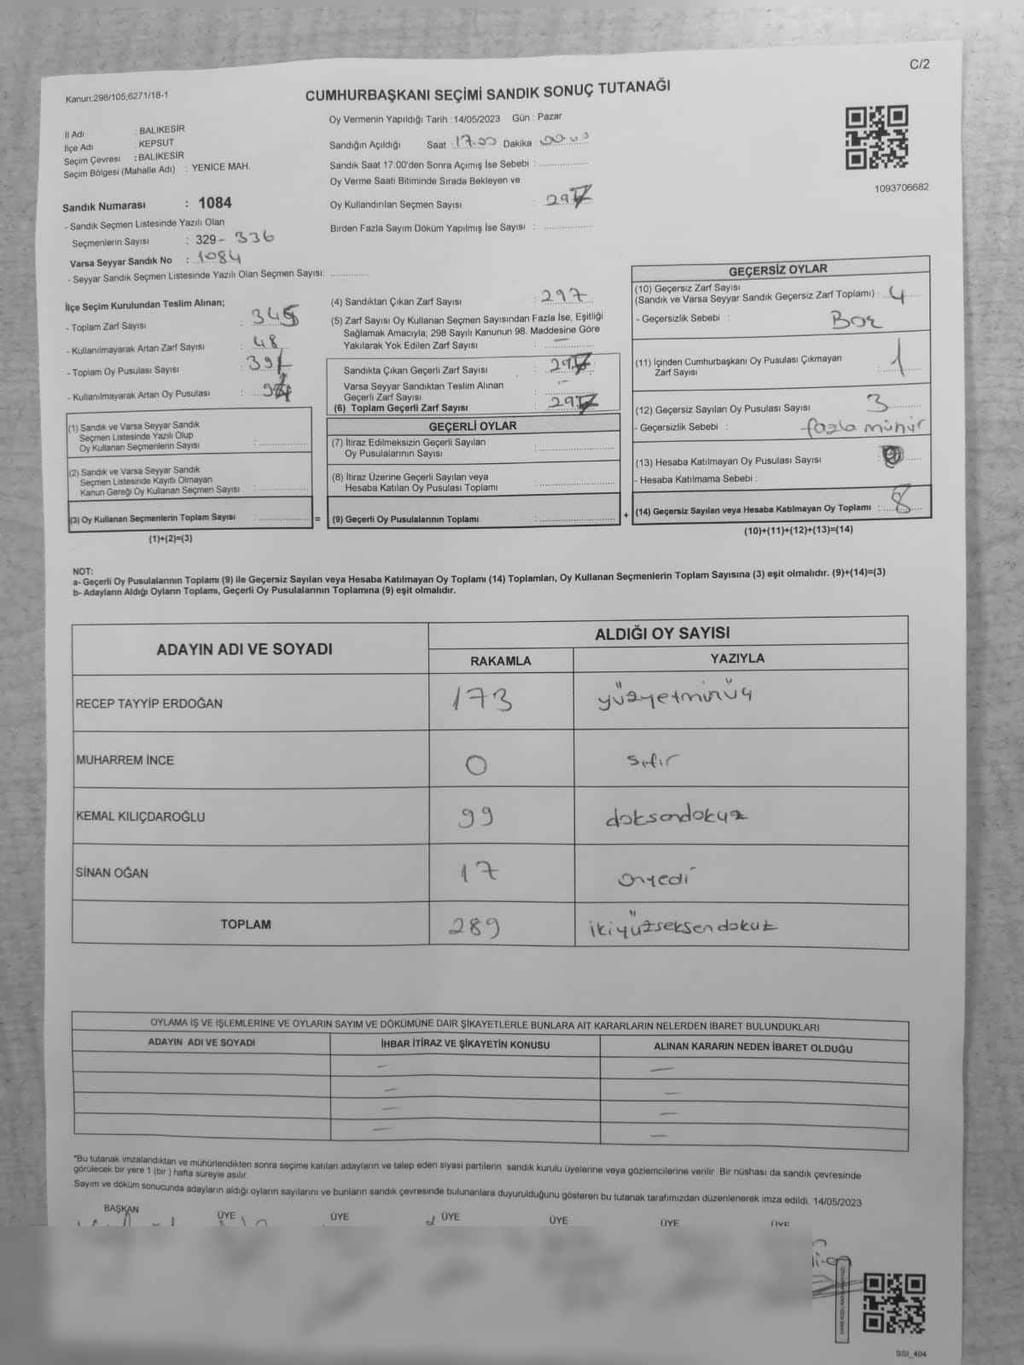 C/2
Kanun:298/105,6271/18-1
CUMHURBAŞKANI SEÇİMİ SANDIK SONUÇ TUTANAĞI
İl Adı : BALIKESİR
İlçe Adı : KEPSUT
Seçim Çevresi : BALIKESİR
Seçim Bölgesi (Mahalle Adı) : YENICE MAH.
Sandık Numarası : 1084
- Sandık Seçmen Listesinde Yazılı Olan
Seçmenlerin Sayısı : 329- 336
Varsa Seyyar Sandık No : 1084
- Seyyar Sandık Seçmen Listesinde Yazılı Olan Seçmen Sayısı:
Oy Vermenin Yapıldığı Tarih : 14/05/2023 Gün : Pazar
Sandığın Açıldığı Saat : 17:00 Dakika
Sandık Saat 17:00'den Sonra Açımış İse Sebebi :
Oy Verme Saati Bitiminde Sırada Bekleyen ve
Oy Kullandırılan Seçmen Sayısı : 297
Birden Fazla Sayım Döküm Yapılmış İse Sayısı :
1093706682
İlçe Seçim Kurulundan Teslim Alınan;
- Toplam Zarf Sayısı : 345
- Kullanılmayarak Artan Zarf Sayısı : 48
- Toplam Oy Pusulası Sayısı :
- Kullanılmayarak Artan Oy Pusulası :
(1) Sandık ve Varsa Seyyar Sandık
Seçmen Listesinde Yazılı Olup
Oy Kullanan Seçmenlerin Sayısı :
(2) Sandık ve Varsa Seyyar Sandık
Seçmen Listesinde Kayıtlı Olmayan
Kanun Gereği Oy Kullanan Seçmen Sayısı :
(3) Oy Kullanan Seçmenlerin Toplam Sayısı :
(1)+(2)=(3)
=
(4) Sandıktan Çıkan Zarf Sayısı : 297
(5) Zarf Sayısı Oy Kullanan Seçmen Sayısından Fazla İse, Eşitliği
Sağlamak Amacıyla; 298 Sayılı Kanunun 98. Maddesine Göre
Yakılarak Yok Edilen Zarf Sayısı : —
Sandıkta Çıkan Geçerli Zarf Sayısı : 297
Varsa Seyyar Sandıktan Teslim Alınan
Geçerli Zarf Sayısı : —
(6) Toplam Geçerli Zarf Sayısı : 297
GEÇERLİ OYLAR
(7) İtiraz Edilmeksizin Geçerli Sayılan
Oy Pusulalarının Sayısı :
(8) İtiraz Üzerine Geçerli Sayılan veya
Hesaba Katılan Oy Pusulası Toplamı :
(9) Geçerli Oy Pusulalarının Toplamı :
+
GEÇERSİZ OYLAR
(10) Geçersiz Zarf Sayısı
(Sandık ve Varsa Seyyar Sandık Geçersiz Zarf Toplamı) : 4
- Geçersizlik Sebebi : Boz
(11) İçinden Cumhurbaşkanı Oy Pusulası Çıkmayan
Zarf Sayısı : 1
(12) Geçersiz Sayılan Oy Pusulası Sayısı : 3
- Geçersizlik Sebebi : fazla mühür
(13) Hesaba Katılmayan Oy Pusulası Sayısı :
- Hesaba Katılmama Sebebi :
(14) Geçersiz Sayılan veya Hesaba Katılmayan Oy Toplamı : 8
(10)+(11)+(12)+(13)=(14)
NOT:
a- Geçerli Oy Pusulalarının Toplamı (9) ile Geçersiz Sayılan veya Hesaba Katılmayan Oy Toplamı (14) Toplamları, Oy Kullanan Seçmenlerin Toplam Sayısına (3) eşit olmalıdır. (9)+(14)=(3)
b- Adayların Aldığı Oyların Toplamı, Geçerli Oy Pusulalarının Toplamına (9) eşit olmalıdır.
ADAYIN ADI VE SOYADI ALDIĞI OY SAYISI
RAKAMLA YAZIYLA
RECEP TAYYİP ERDOĞAN 173 yüzyetmişüç
MUHARREM İNCE 0 sıfır
KEMAL KILIÇDAROĞLU 99 doksandokuz
SİNAN OĞAN 17 onyedi
TOPLAM 289 ikiyüzseksendokuz
OYLAMA İŞ VE İŞLEMLERİNE VE OYLARIN SAYIM VE DÖKÜMÜNE DAİR ŞİKAYETLERLE BUNLARA AİT KARARLARIN NELERDEN İBARET BULUNDUKLARI
ADAYIN ADI VE SOYADI İHBAR İTİRAZ VE ŞİKAYETİN KONUSU ALINAN KARARIN NEDEN İBARET OLDUĞU
— —
— —
— —
— —
"Bu tutanak imzalandıktan ve mühürlendikten sonra seçime katılan adayların ve talep eden siyasi partilerin sandık kurulu üyelerine veya gözlemcilerine verilir. Bir nüshası da sandık çevresinde
görülecek bir yere 1 (bir ) hafta süreyle asılır.
Sayım ve döküm sonucunda adayların aldığı oyların sayılarını ve bunların sandık çevresinde bulunanlara duyurulduğunu gösteren bu tutanak tarafımızdan düzenlenerek imza edildi. 14/05/2023
BAŞKAN ÜYE ÜYE ÜYE ÜYE ÜYE ÜYE
SSI_404